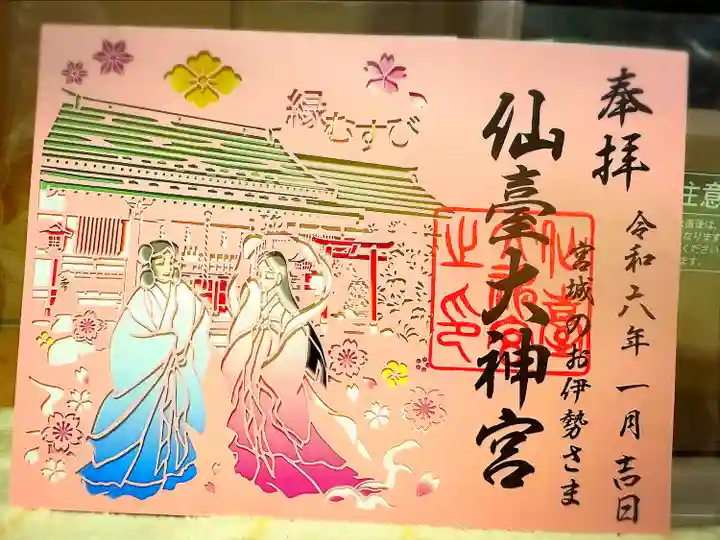 奉拝
令和六年 一月 吉日
宮城のお伊勢さま
仙臺大神宮
縁むすび
注意